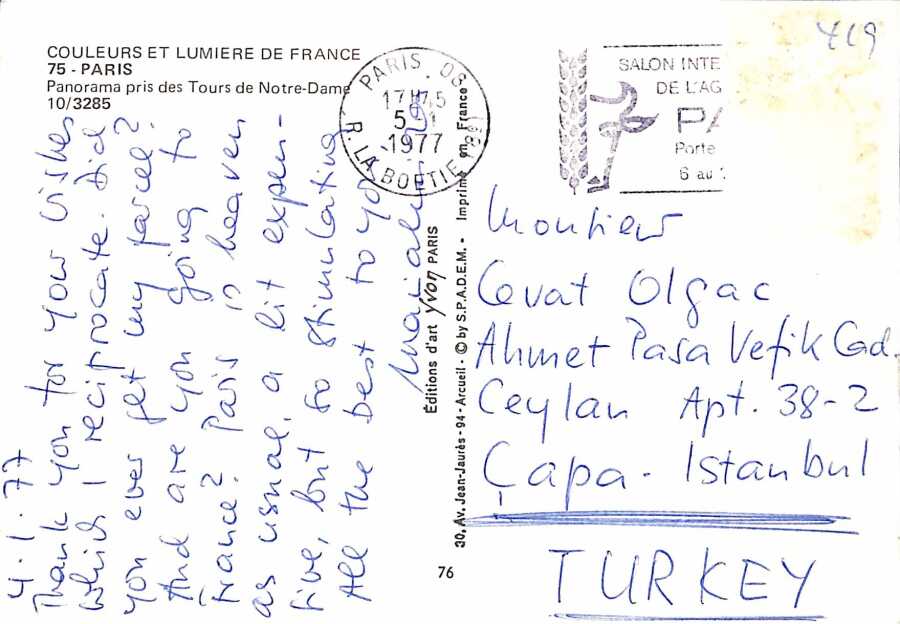 COULEURS ET LUMIERE DE FRANCE
75 - PARIS
Panorama pris des Tours de Notre-Dame
10/3285
4.1.77
Thank you for your wishes
which I reciprocate. Did
you ever get my parcel?
And are you going to
France? Paris is heaven
as usual, a bit expen-
sive, but so stimulating
All the best to you
Editions d'art yvon PARIS
30, Av. Jean-Jaurès - 94 - Arcueil - © by S.P.A.D.E.M. - Imprimé en France
76
PARIS 08
17H.5
5
1977
R. LA BOETIE
SALON INTE
DE L'AG
PA
Porte
6 au
719
Monsieur
Cevat Olgac
Ahmet Pasa Vefik Cad.
Ceylan Apt. 38-2
Çapa - Istanbul
TURKEY